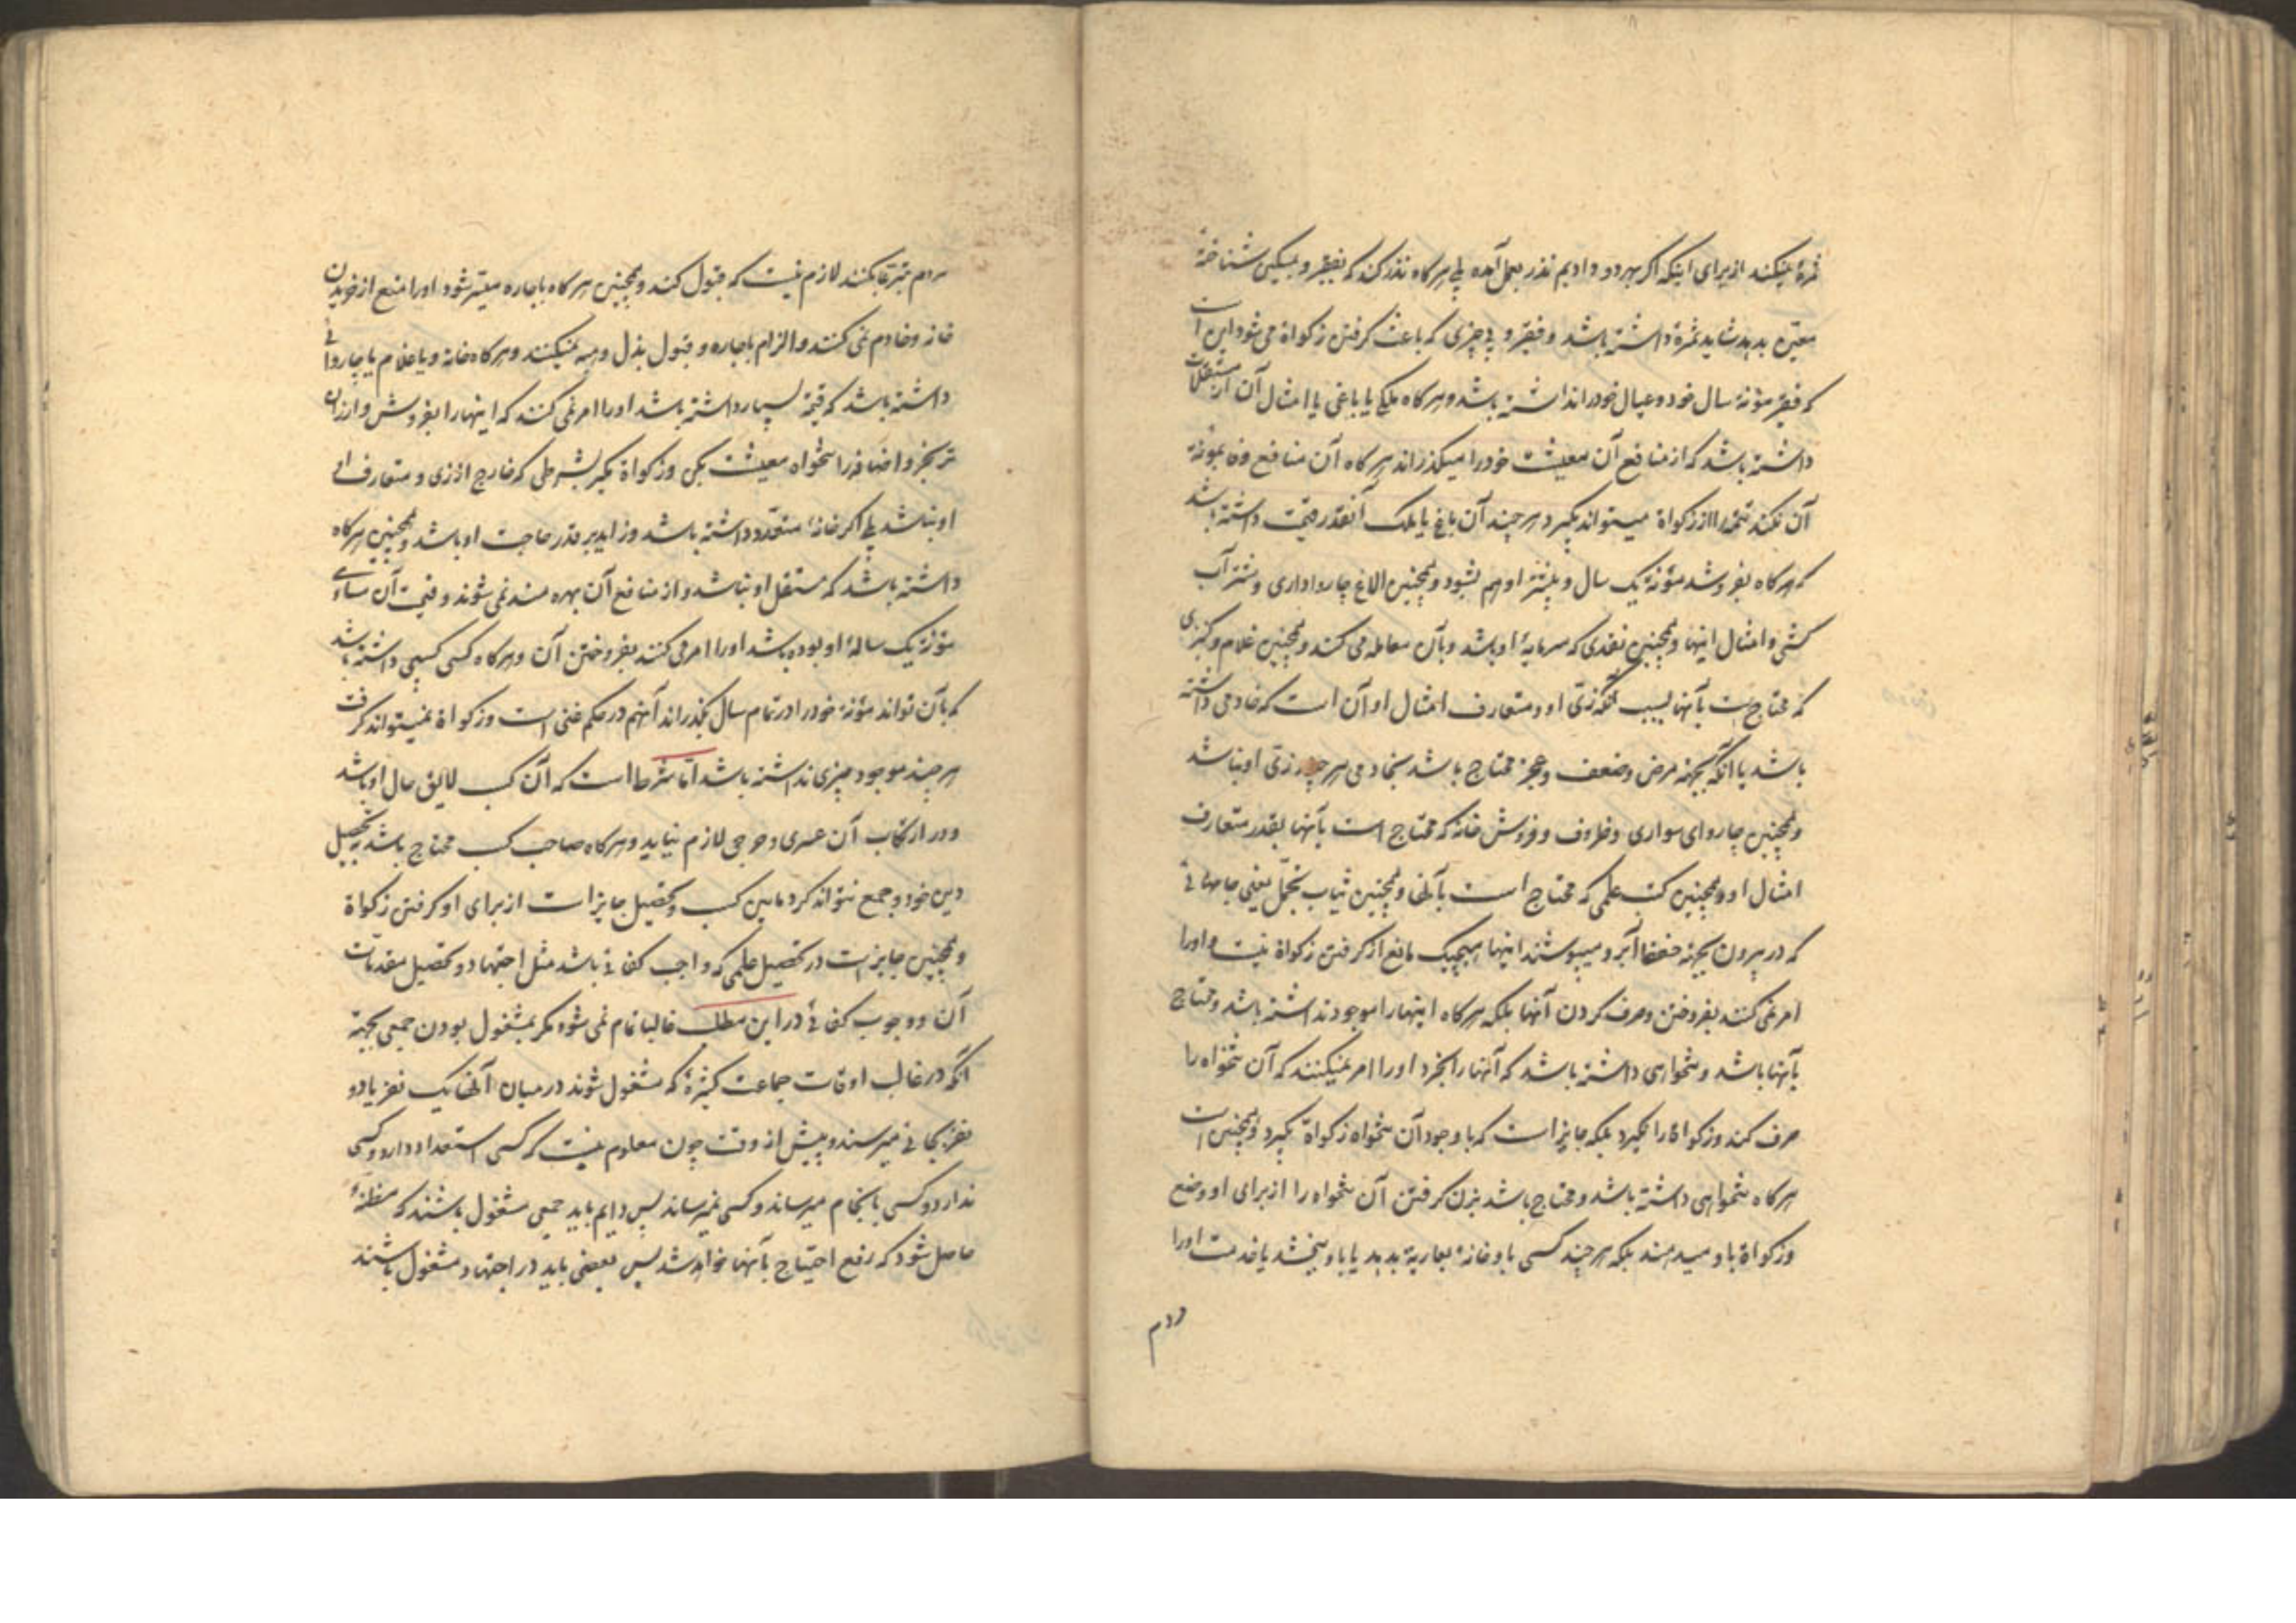 ثمرهٔ نمیکند از برای اینکه اگر بهر دو دادیم نذر بعمل آمده بلی هرگاه نذر کند که بفقیر و مسکین شناخته
معیّن بدهد شاید ثمرهٔ داشته باشد و فقیر و بی چیزی که باعث گرفتن زکواة می شود این است
که فقیر مؤنهٔ سال خود و عیال خود را نداشته باشد و هرگاه ملکی یا باغی یا امثال آن از مستقلات
داشته باشد که از منافع آن معیشت خود را میگذراند هرگاه آن منافع وفا بمؤنه
آن نکند تتمه را از زکواة میتواند بگیرد هر چند آن باغ یا ملک آنقدر قیمت داشته باشد
که هرگاه بفروشد مؤنهٔ یک سال و بیشتر او هم بشود و همچنین الاغ چارواداری و شتر آب
کشی و امثال اینها و همچنین نقدی که سرمایهٔ او باشد و بآن معامله می کند و همچنین غلام و کنیزی
که محتاجست بآنها بسبب آنکه زیّ او و متعارف امثال او آن است که خادمی داشته
باشد یا آنکه بجهة مرض و ضعف و عجز محتاج باشد بخادمی هر چند زیّ او نباشد
و همچنین چاروای سواری و ظروف و فروش خانه که محتاج است بآنها بقدر متعارف
امثال او و همچنین کتب علمی که محتاج است بآنها و همچنین ثیاب تجمّل یعنی جامهائی
که در بیرون بجهة حفظ آبرو میپوشند اینها هیچیک مانع از گرفتن زکواة نیست و او را
امر نمی کنند بفروختن و صرف کردن آنها بلکه هرگاه اینها را موجود نداشته باشد و محتاج
بآنها باشد و تنخواهی داشته باشد که آنها را بخرد او را امر نمیکنند که آن تنخواه را
صرف کند و زکواة را نگیرد بلکه جایز است که با وجود آن تنخواه زکواة بگیرد و همچنین است
هرگاه تنخواهی داشته باشد و محتاج باشد بزن گرفتن آن تنخواه را از برای او وضع
و زکواة باو میدهند بلکه هر چند کسی باو خانهٔ بعاریة بدهد یا باو ببخشد یا خدمت او را
مردم
مردم تبرّعا بکنند لازم نیست که قبول کند و همچنین هرگاه باجاره میسّر شود او را منع از خریدن
خانه و خادم نمی کنند و الزام باجاره و قبول بذل و هبه نمیکنند و هرگاه خانه و یا غلام یا چاروائی
داشته باشد که قیمة بسیار داشته باشد او را امر نمی کنند که اینها را بفروش و ارزان
تر بخر و اضافه را تنخواه معیشت بکن و زکواة بگیر بشرطی که خارج از زی و متعارف
او نباشد بلی اگر خانهٔ متعدّد داشته باشد و زاید بر قدر حاجت او باشد و همچنین هرگاه
داشته باشد که مستقل او نباشد و از منافع آن بهره مند نمی شوند و قیمت آن مساوی
مؤنهٔ یک سالهٔ او بوده باشد او را امر می کنند بفروختن آن و هرگاه کسی کسبی داشته باشد
که بآن تواند مؤنهٔ خود را در تمام سال بگذراند آنهم در حکم غنی است و زکواة نمیتواند گرفت
هر چند موجود چیزی نداشته باشد امّا شرط است که آن کسب لایق حال او باشد
و در ارتکاب آن عسری و حرجی لازم نیاید و هرگاه صاحب کسب محتاج باشد بتحصیل
دین خود و جمع نتواند کرد مابین کسب و تحصیل جایز است از برای او گرفتن زکواة
و همچنین جایز است در تحصیل علمی که واجب کفائی باشد مثل اجتهاد و تحصیل مقدمات
آن و وجوب کفائی در این مطلب غالبا تمام نمی شود مگر بمشغول بودن جمعی بجهة
آنکه در غالب اوقات جماعت کثیرهٔ که مشغول شوند در میان آنها یک نفر یا دو
نفر بجائی میرسند و پیش از وقت چون معلوم نیست که کسی استعداد دارد و کسی
ندارد و کسی بانجام میرساند و کسی نمیرساند پس دایم باید جمعی مشغول باشند که مظنهٔ
حاصل شود که رفع احتیاج بآنها خواهد شد پس بعضی باید در اجتهاد مشغول باشند